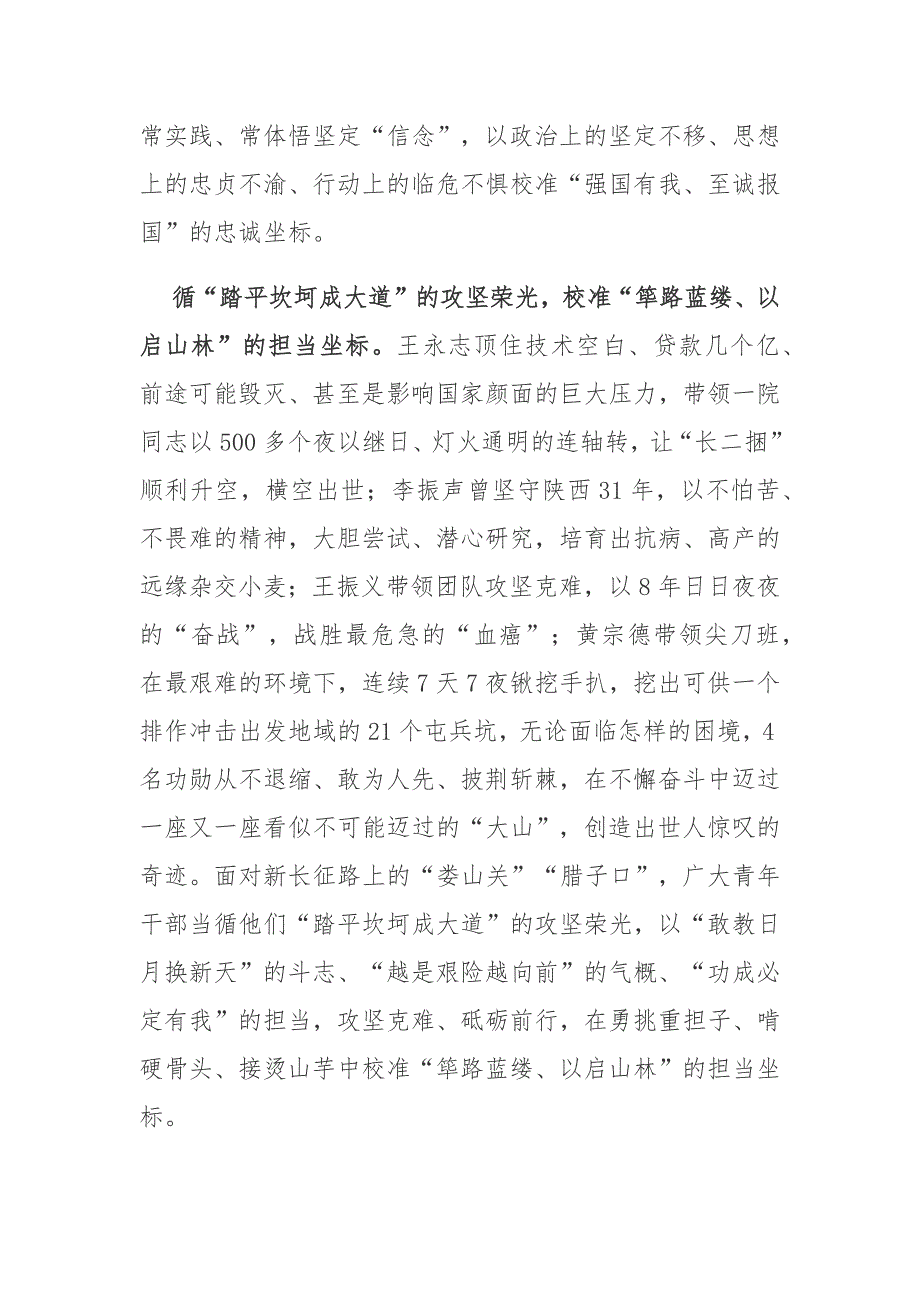 常实践、常体悟坚定“信念”，以政治上的坚定不移、思想
上的忠贞不渝、行动上的临危不惧校准“强国有我、至诚报
国”的忠诚坐标。
循“踏平坎坷成大道”的攻坚荣光，校准“筚路蓝缕、以
启山林”的担当坐标。王永志顶住技术空白、贷款几个亿、
前途可能毁灭、甚至是影响国家颜面的巨大压力，带领一院
同志以 500 多个夜以继日、灯火通明的连轴转，让“长二捆”
顺利升空，横空出世；李振声曾坚守陕西 31 年，以不怕苦、
不畏难的精神，大胆尝试、潜心研究，培育出抗病、高产的
远缘杂交小麦；王振义带领团队攻坚克难，以 8 年日日夜夜
的“奋战”，战胜最危急的“血癌”；黄宗德带领尖刀班，
在最艰难的环境下，连续 7 天 7 夜锹挖手扒，挖出可供一个
排作冲击出发地域的 21 个屯兵坑，无论面临怎样的困境，4
名功勋从不退缩、敢为人先、披荆斩棘，在不懈奋斗中迈过
一座又一座看似不可能迈过的“大山”，创造出世人惊叹的
奇迹。面对新长征路上的“娄山关”“腊子口”，广大青年
干部当循他们“踏平坎坷成大道”的攻坚荣光，以“敢教日
月换新天”的斗志、“越是艰险越向前”的气概、“功成必
定有我”的担当，攻坚克难、砥砺前行，在勇挑重担子、啃
硬骨头、接烫山芋中校准“筚路蓝缕、以启山林”的担当坐
标。